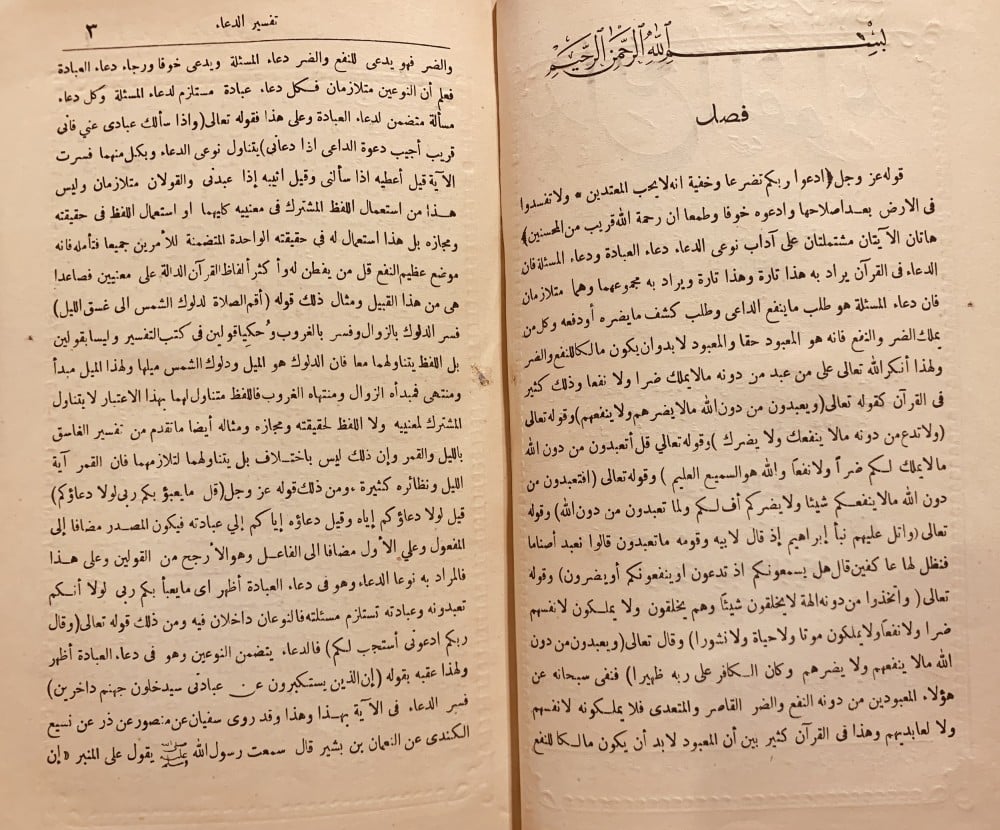 بسم الله الرحمن الرحيم
فصل
قوله عز وجل (ادعوا ربكم تضرعا وخفية انه لا يحب المعتدين * ولا تفسدوا
فى الارض بعد اصلاحها وادعوه خوفا وطمعا ان رحمة الله قريب من المحسنين)
هاتان الآيتان مشتملتان على آداب نوعى الدعاء دعاء العبادة ودعاء المسئلة فان
الدعاء فى القرآن يراد به هذا تارة وهذا تارة ويراد به مجموعهما وهما متلازمان
فان دعاء المسئلة هو طلب ما ينفع الداعى وطلب كشف ما يضره أو دفعه وكل من
يملك الضر والنفع فانه هو المعبود حقا والمعبود لا بد وان يكون مالكا للنفع والضر
ولهذا أنكر الله تعالى على من عبد من دونه مالا يملك ضرا ولا نفعا وذلك كثير
فى القرآن كقوله تعالى (ويعبدون من دون الله مالا يضرهم ولا ينفعهم) وقوله تعالى
(ولا تدع من دونه مالا ينفعك ولا يضرك) وقوله تعالي قل أتعبدون من دون الله
مالا يملك لكم ضراً ولا نفعاً والله هو السميع العليم) وقوله تعالى (افتعبدون من
دون الله مالا ينفعكم شيئا ولا يضركم أف لكم ولما تعبدون من دون الله) وقوله
تعالى (واتل عليهم نبأ إبراهيم إذ قال لابيه وقومه ما تعبدون قالوا نعبد أصناما
فنظل لها عاكفين قال هل يسمعونكم اذ تدعون او ينفعونكم أو يضرون) وقوله
تعالى (واتخذوا من دونه الهة لا يخلقون شيئاً وهم يخلقون ولا يملكون لانفسهم
ضرا ولا نفعاً ولا يملكون موتا ولا حياة ولا نشورا) وقال تعالى (ويعبدون من دون
الله مالا ينفعهم ولا يضرهم وكان الكافر على ربه ظهيرا) فنفى سبحانه عن
هؤلاء المعبودين من دونه النفع والضر القاصر والمتعدى فلا يملكونه لانفسهم
ولا لعابديهم وهذا فى القرآن كثير بين أن المعبود لابد أن يكون مالكا للنفع
تفسير الدعاء ٣
والضر فهو يدعى للنفع والضر دعاء المسئلة ويدعى خوفا ورجاء دعاء العبادة
فعلم أن النوعين متلازمان فكل دعاء عبادة مستلزم لدعاء المسئلة وكل دعاء
مسألة متضمن لدعاء العبادة وعلى هذا فقوله تعالى (واذا سألك عبادى عني فانى
قريب أجيب دعوة الداعى اذا دعانى) يتناول نوعى الدعاء وبكل منهما فسرت
الآية قيل أعطيه اذا سألنى وقيل اثيبه إذا عبدنى والقولان متلازمان وليس
هذا من استعمال اللفظ المشترك فى معنييه كليهما او استعمال اللفظ فى حقيقته
ومجازه بل هذا استعمال له فى حقيقته الواحدة المتضمنة للأمرين جميعا فتأمله فانه
موضع عظيم النفع قل من يفطن له وأكثر ألفاظ القرآن الدالة على معنيين فصاعدا
هى من هذا القبيل ومثال ذلك قوله (أقم الصلاة لدلوك الشمس الى غسق الليل)
فسر الدلوك بالزوال وفسر بالغروب وحكيا قولين فى كتب التفسير وليسا بقولين
بل اللفظ يتناولهما معا فان الدلوك هو الميل ودلوك الشمس ميلها ولهذا الميل مبدأ
ومنتهى فمبدأه الزوال ومنتهاه الغروب فاللفظ متناول لهما بهذا الاعتبار لا يتناول
المشترك لمعنييه ولا اللفظ لحقيقته ومجازه ومثاله أيضا ما تقدم من تفسير الغاسق
بالليل والقمر وإن ذلك ليس باختلاف بل يتناولهما لتلازمهما فان القمر آية
الليل ونظائره كثيرة ومن ذلك قوله عز وجل (قل ما يعبؤ بكم ربى لولا دعاؤكم)
قيل لولا دعاؤكم إياه وقيل دعاؤه إياكم إلي عبادته فيكون المصدر مضافا إلى
المفعول وعلي الأول مضافا الى الفاعل وهو الأرجح من القولين وعلى هذا
فالمراد به نوعا الدعاء وهو فى دعاء العبادة أظهر اى ما يعبأ بكم ربى لولا أنكم
تعبدونه وعبادته تستلزم مسئلته فالنوعان داخلان فيه ومن ذلك قوله تعالى (وقال
ربكم ادعونى أستجب لكم) فالدعاء يتضمن النوعين وهو فى دعاء العبادة أظهر
ولهذا عقبه بقوله (إن الذين يستكبرون عن عبادتى سيدخلون جهنم داخرين)
فسر الدعاء فى الآية بهذا وهذا وقد روى سفيان عن منصور عن ذر عن نسيع
الكندى عن النعمان بن بشير قال سمعت رسول الله ﷺ يقول على المنبر «إن